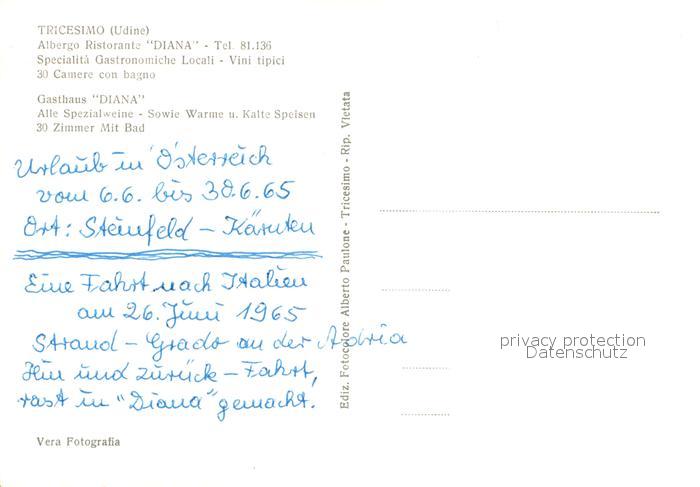 TRICESIMO (Udine)
Albergo Ristorante "DIANA" - Tel. 81.136
Specialità Gastronomiche Locali - Vini tipici
30 Camere con bagno
Gasthaus "DIANA"
Alle Spezialweine - Sowie Warme u. Kalte Speisen
30 Zimmer Mit Bad
Urlaub in Österreich
vom 6.6. bis 30.6.65
Ort: Steinfeld - Kärnten
Eine Fahrt nach Italien
am 26. Juni 1965
Strand - Grado an der Adria
Hin und zurück - Fahrt,
rast in "Diana" gemacht.
Vera Fotografia
Ediz. Fotocolore Alberto Paulone - Tricesimo - Rip. Vietata
privacy protection
Datenschutz